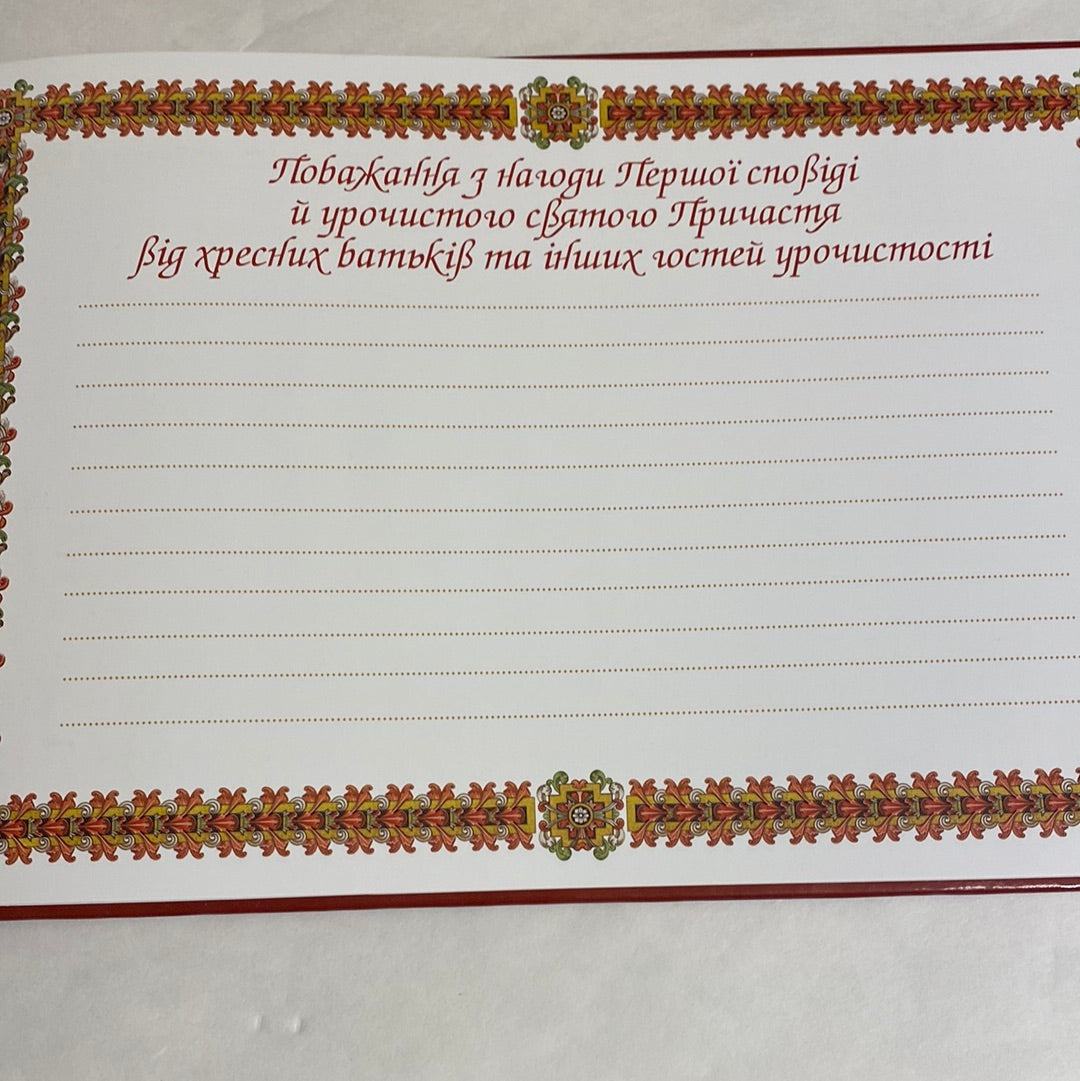 Поважання з нагоди Першої сповіді
й урочистого святого Причастя
від хресних батьків та інших гостей урочистості